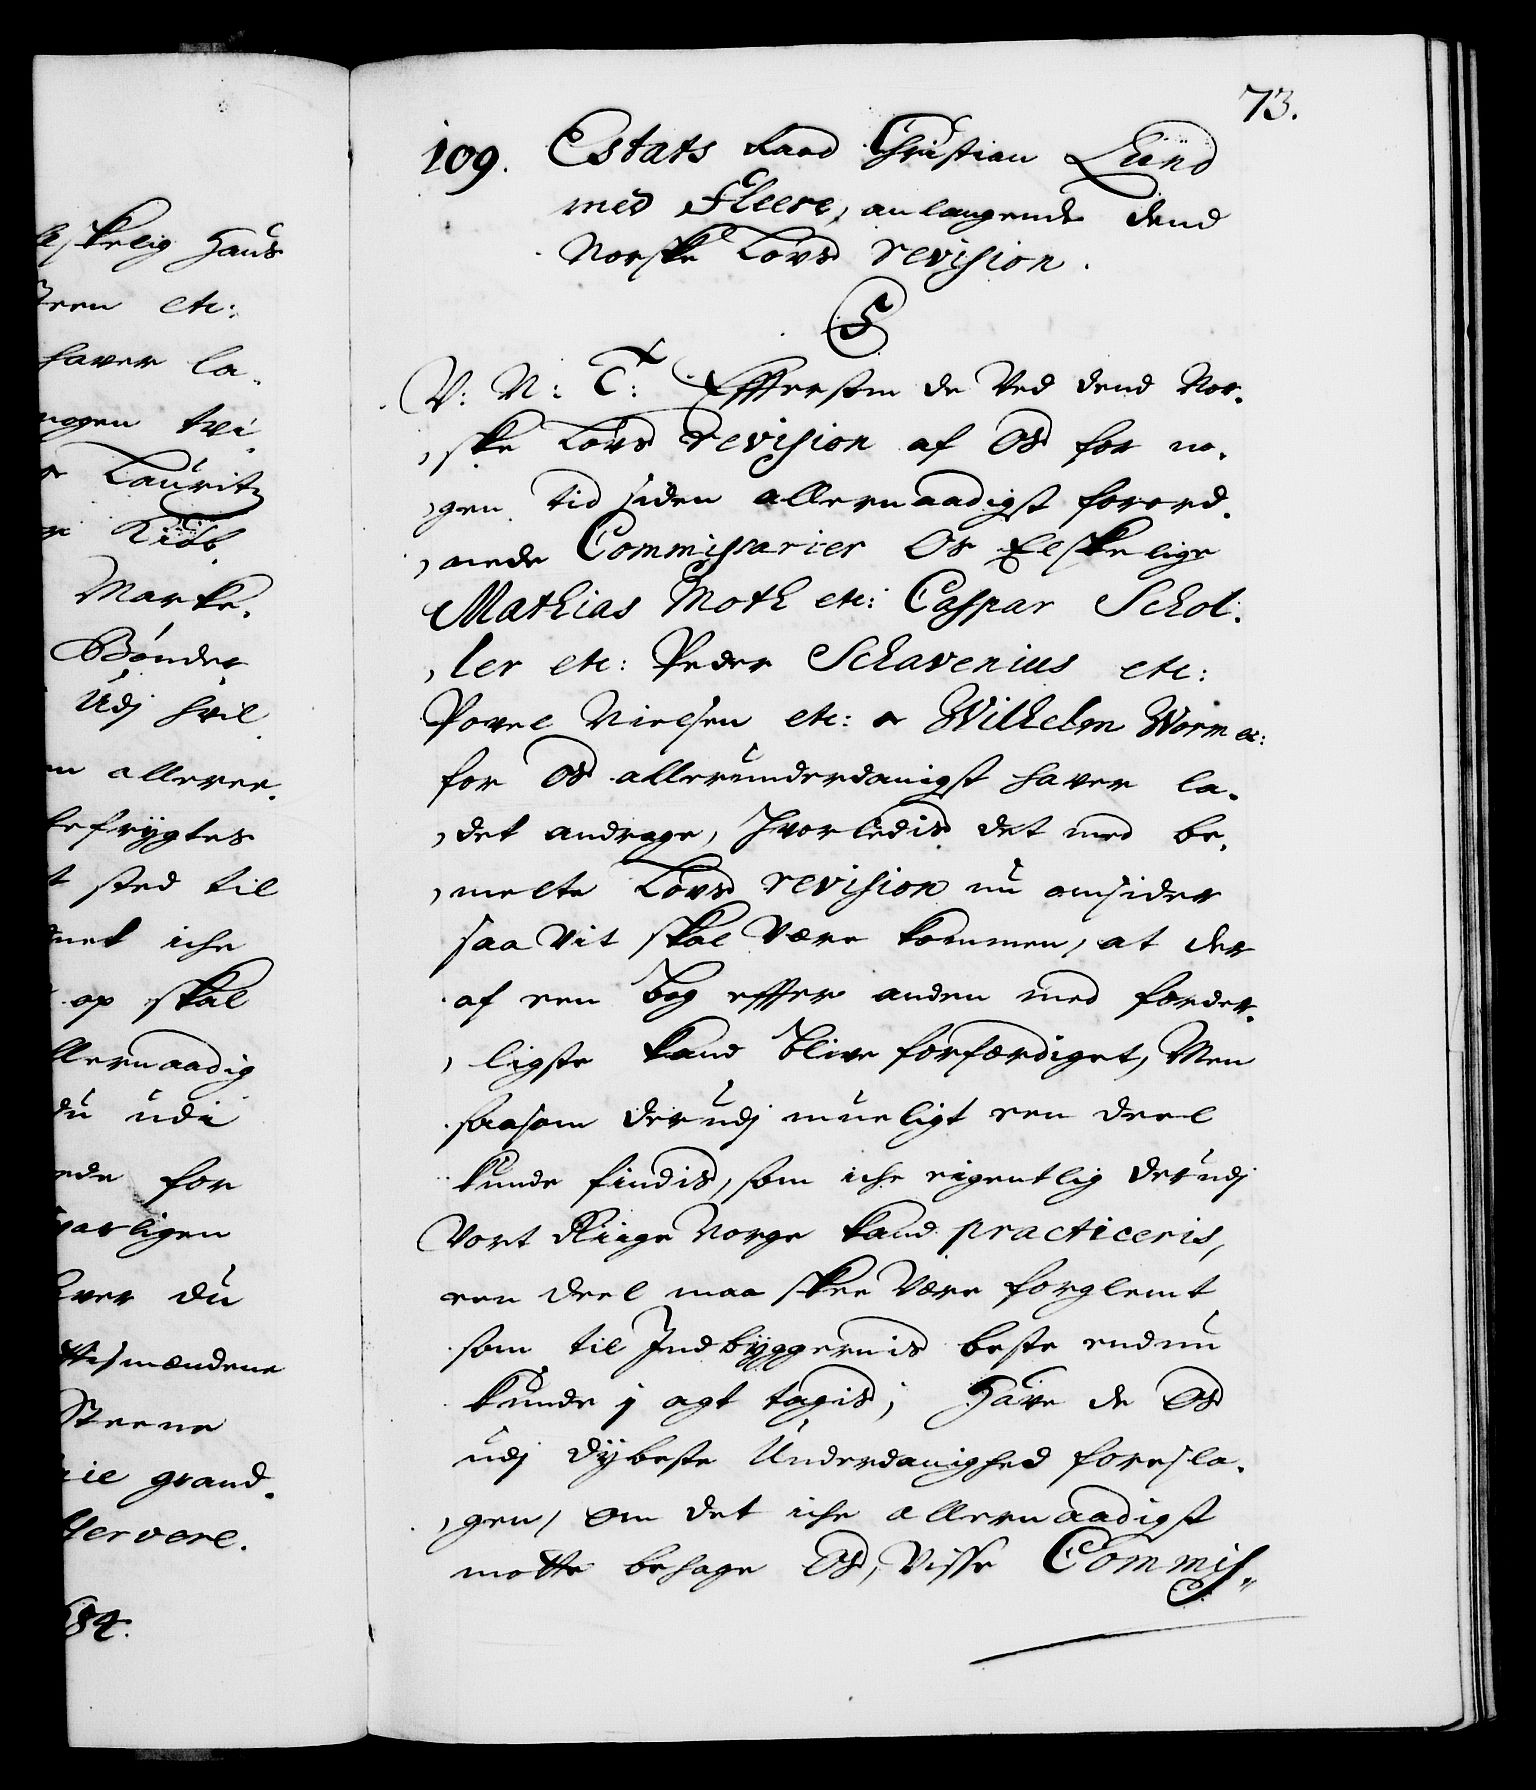 73.
109. Estats Raad Christian Lund
med Fleere, anlangende dend
Norske Lovs revision.
V: N: T: Effterson de Ved dend Nor-
ske Lovs revision af Os for no-
gen tid siden allernaadigst forord-
nede Commissarier Os Elskelige
Mathias Moth etc: Caspar Schöl-
ler etc: Peder Schavenius etc:
Povel Nielsen etc: & Wilhelm Worm etc:
for Os allerunderdanigst haver la-
det andrage, hvorledis det med be-
melte Lovs revision nu omsider
saa Vit skal Være kommen, at der
af een bog effter anden med forder-
ligste kand blive forfærdiget, Men
saasom derudj mueligt een deel
kunde findis, som iche eigentlig derudj
Vort Riige Norge kand practiceris,
een deel maa skee Være forglemt
som til Indbyggernis beste endnu
kunde j agt tagis; Have de Os
udj dybeste Underdanighed foresla-
gen, om det iche allernaadigst
motte behage Os, Visse Commis-
elskelig Hans
Steen etc:
haver la-
nogen tvi
Lauritz
Kiøb
Marke-
Bønder
Udj hvil
alleree-
befrygtes
sted til
iche
op skal
allernaadig
du udi
for
svarligen
du
Steene
grand-
84.